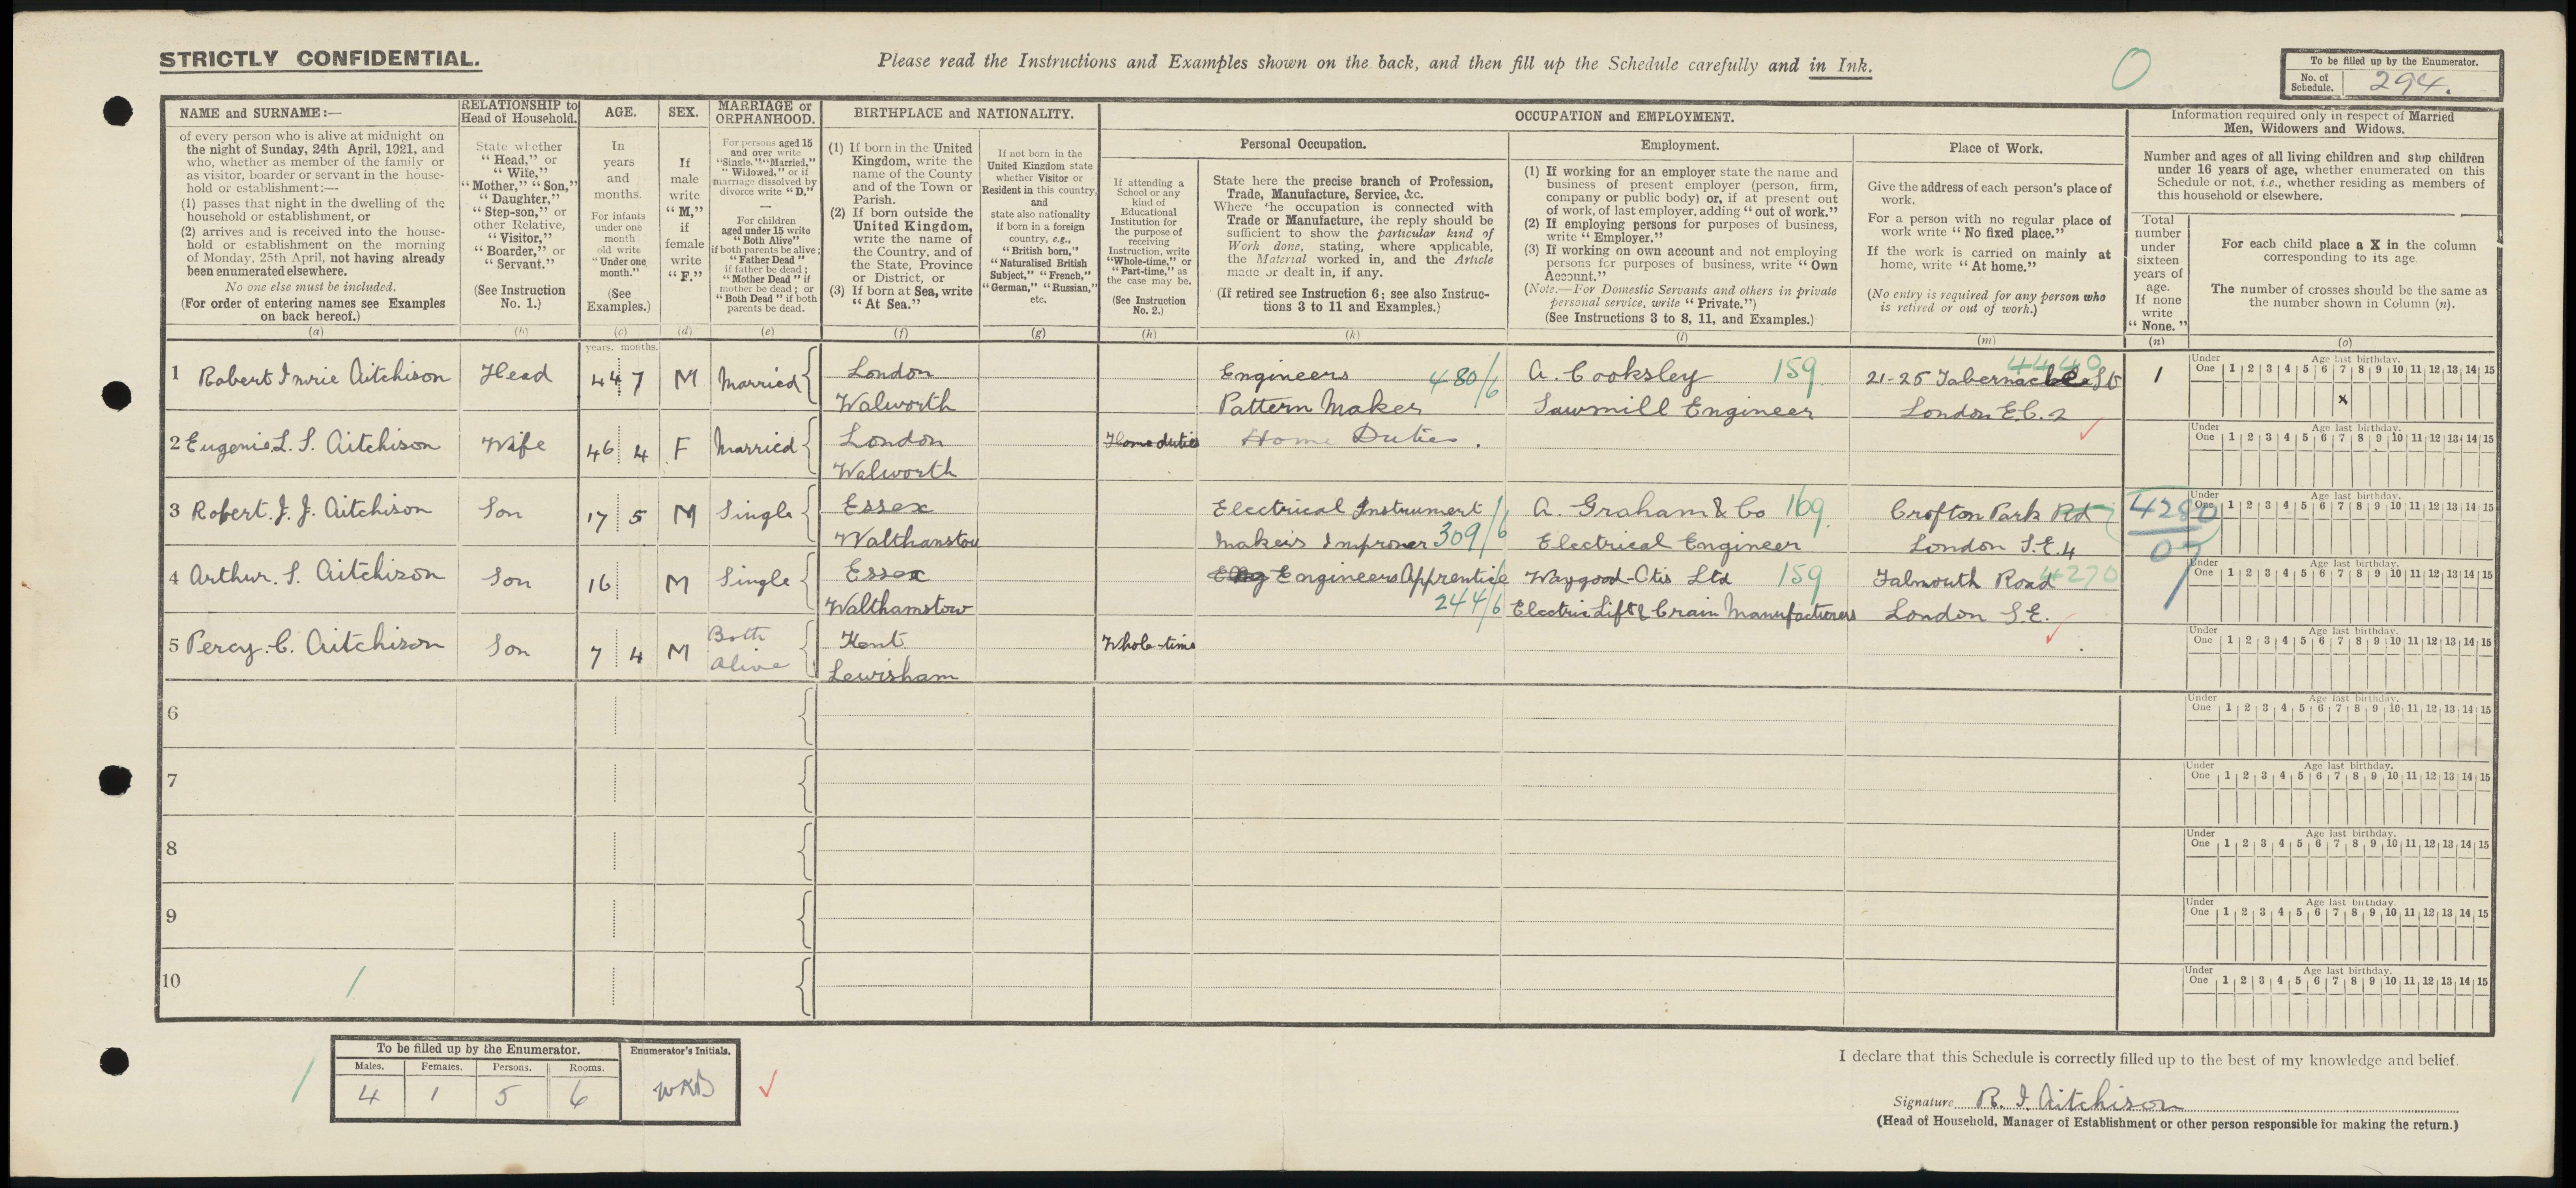 STRICTLY CONFIDENTIAL.
Please read the Instructions and Examples shown on the back, and then fill up the Schedule carefully and in Ink.
0
To be filled up by the Enumerator.
No. of Schedule. 294.
NAME and SURNAME:—
of every person who is alive at midnight on
the night of Sunday, 24th April, 1921, and
who, whether as member of the family or
as visitor, boarder or servant in the house-
hold or establishment:—
(1) passes that night in the dwelling of the
household or establishment, or
(2) arrives and is received into the house-
hold or establishment on the morning
of Monday, 25th April, not having already
been enumerated elsewhere.
No one else must be included.
(For order of entering names see Examples
on back hereof.)
(a)
RELATIONSHIP to
Head of Household.
State whether
"Head," or
"Wife,"
"Mother," "Son,"
"Daughter,"
"Step-son," or
other Relative,
"Visitor,"
"Boarder," or
"Servant."
(See Instruction
No. 1.)
(b)
AGE.
In
years
and
months.
For infants
under one
month
old write
"Under one
month."
(See
Examples.)
(c)
years. months.
SEX.
If
male
write
"M,"
if
female
write
"F."
(d)
MARRIAGE or
ORPHANHOOD.
For persons aged 15
and over write
"Single," "Married,"
"Widowed," or if
marriage dissolved by
divorce write "D."
—
For children
aged under 15 write
"Both Alive"
if both parents be alive;
"Father Dead"
if father be dead;
"Mother Dead" if
mother be dead; or
"Both Dead" if both
parents be dead.
(e)
BIRTHPLACE and NATIONALITY.
(1) If born in the United
Kingdom, write the
name of the County
and of the Town or
Parish.
(2) If born outside the
United Kingdom,
write the name of
the Country, and of
the State, Province
or District, or
(3) If born at Sea, write
"At Sea."
(f)
If not born in the
United Kingdom state
whether Visitor or
Resident in this country,
and
state also nationality
if born in a foreign
country, e.g.,
"British born,"
"Naturalised British
Subject," "French,"
"German," "Russian,"
etc.
(g)
OCCUPATION and EMPLOYMENT.
Personal Occupation.
If attending a
School or any
kind of
Educational
Institution for
the purpose of
receiving
Instruction, write
"Whole-time," or
"Part-time," as
the case may be.
(See Instruction
No. 2.)
(h)
State here the precise branch of Profession,
Trade, Manufacture, Service, &c.
Where the occupation is connected with
Trade or Manufacture, the reply should be
sufficient to show the particular kind of
Work done, stating, where applicable,
the Material worked in, and the Article
made or dealt in, if any.
(If retired see Instruction 6; see also Instruc-
tions 3 to 11 and Examples.)
(k)
Employment.
(1) If working for an employer state the name and
business of present employer (person, firm,
company or public body) or, if at present out
of work, of last employer, adding "out of work."
(2) If employing persons for purposes of business,
write "Employer."
(3) If working on own account and not employing
persons for purposes of business, write "Own
Account."
(Note.—For Domestic Servants and others in private
personal service, write "Private.")
(See Instructions 3 to 8, 11, and Examples.)
(l)
Place of Work.
Give the address of each person's place of
work.
For a person with no regular place of
work write "No fixed place."
If the work is carried on mainly at
home, write "At home."
(No entry is required for any person who
is retired or out of work.)
(m)
Information required only in respect of Married
Men, Widowers and Widows.
Number and ages of all living children and step children
under 16 years of age, whether enumerated on this
Schedule or not, i.e., whether residing as members of
this household or elsewhere.
Total
number
under
sixteen
years of
age.
If none
write
"None."
(n)
For each child place a X in the column
corresponding to its age.
The number of crosses should be the same as
the number shown in Column (n).
(o)
1 Robert Imrie Aitchison Head 44 7 M Married London Engineers 480/6 A. Cooksley 159 21-25 Tabernacle St 4440 1
Walworth Pattern Maker Sawmill Engineer London E.C. 2
Under One 1 2 3 4 5 6 7 8 9 10 11 12 13 14 15
Age last birthday.
x
2 Eugenie L. S. Aitchison Wife 46 4 F Married London Home duties Home Duties.
Walworth
Under One 1 2 3 4 5 6 7 8 9 10 11 12 13 14 15
Age last birthday.
3 Robert. J. J. Aitchison Son 17 5 M Single Essex Electrical Instrument A. Graham & Co 169 Crofton Park Rd 4280
Walthamstow Makers Improver 309/6 Electrical Engineer London S.E.4 07
Under One 1 2 3 4 5 6 7 8 9 10 11 12 13 14 15
Age last birthday.
4 Arthur. S. Aitchison Son 16 M Single Essex Engineers Apprentice Waygood-Otis Ltd 159 Falmouth Road 4270
Walthamstow 244/6 Electric Lift & Crain Manufacturers London S.E.
Under One 1 2 3 4 5 6 7 8 9 10 11 12 13 14 15
Age last birthday.
5 Percy. C. Aitchison Son 7 4 M Both Alive Kent Whole-time
Lewisham
Under One 1 2 3 4 5 6 7 8 9 10 11 12 13 14 15
Age last birthday.
6
Under One 1 2 3 4 5 6 7 8 9 10 11 12 13 14 15
Age last birthday.
7
Under One 1 2 3 4 5 6 7 8 9 10 11 12 13 14 15
Age last birthday.
8
Under One 1 2 3 4 5 6 7 8 9 10 11 12 13 14 15
Age last birthday.
9
Under One 1 2 3 4 5 6 7 8 9 10 11 12 13 14 15
Age last birthday.
10
Under One 1 2 3 4 5 6 7 8 9 10 11 12 13 14 15
Age last birthday.
To be filled up by the Enumerator.
Males. Females. Persons. Rooms.
4 1 5 6
Enumerator's Initials.
WKB
I declare that this Schedule is correctly filled up to the best of my knowledge and belief.
Signature R. I. Aitchison
(Head of Household, Manager of Establishment or other person responsible for making the return.)